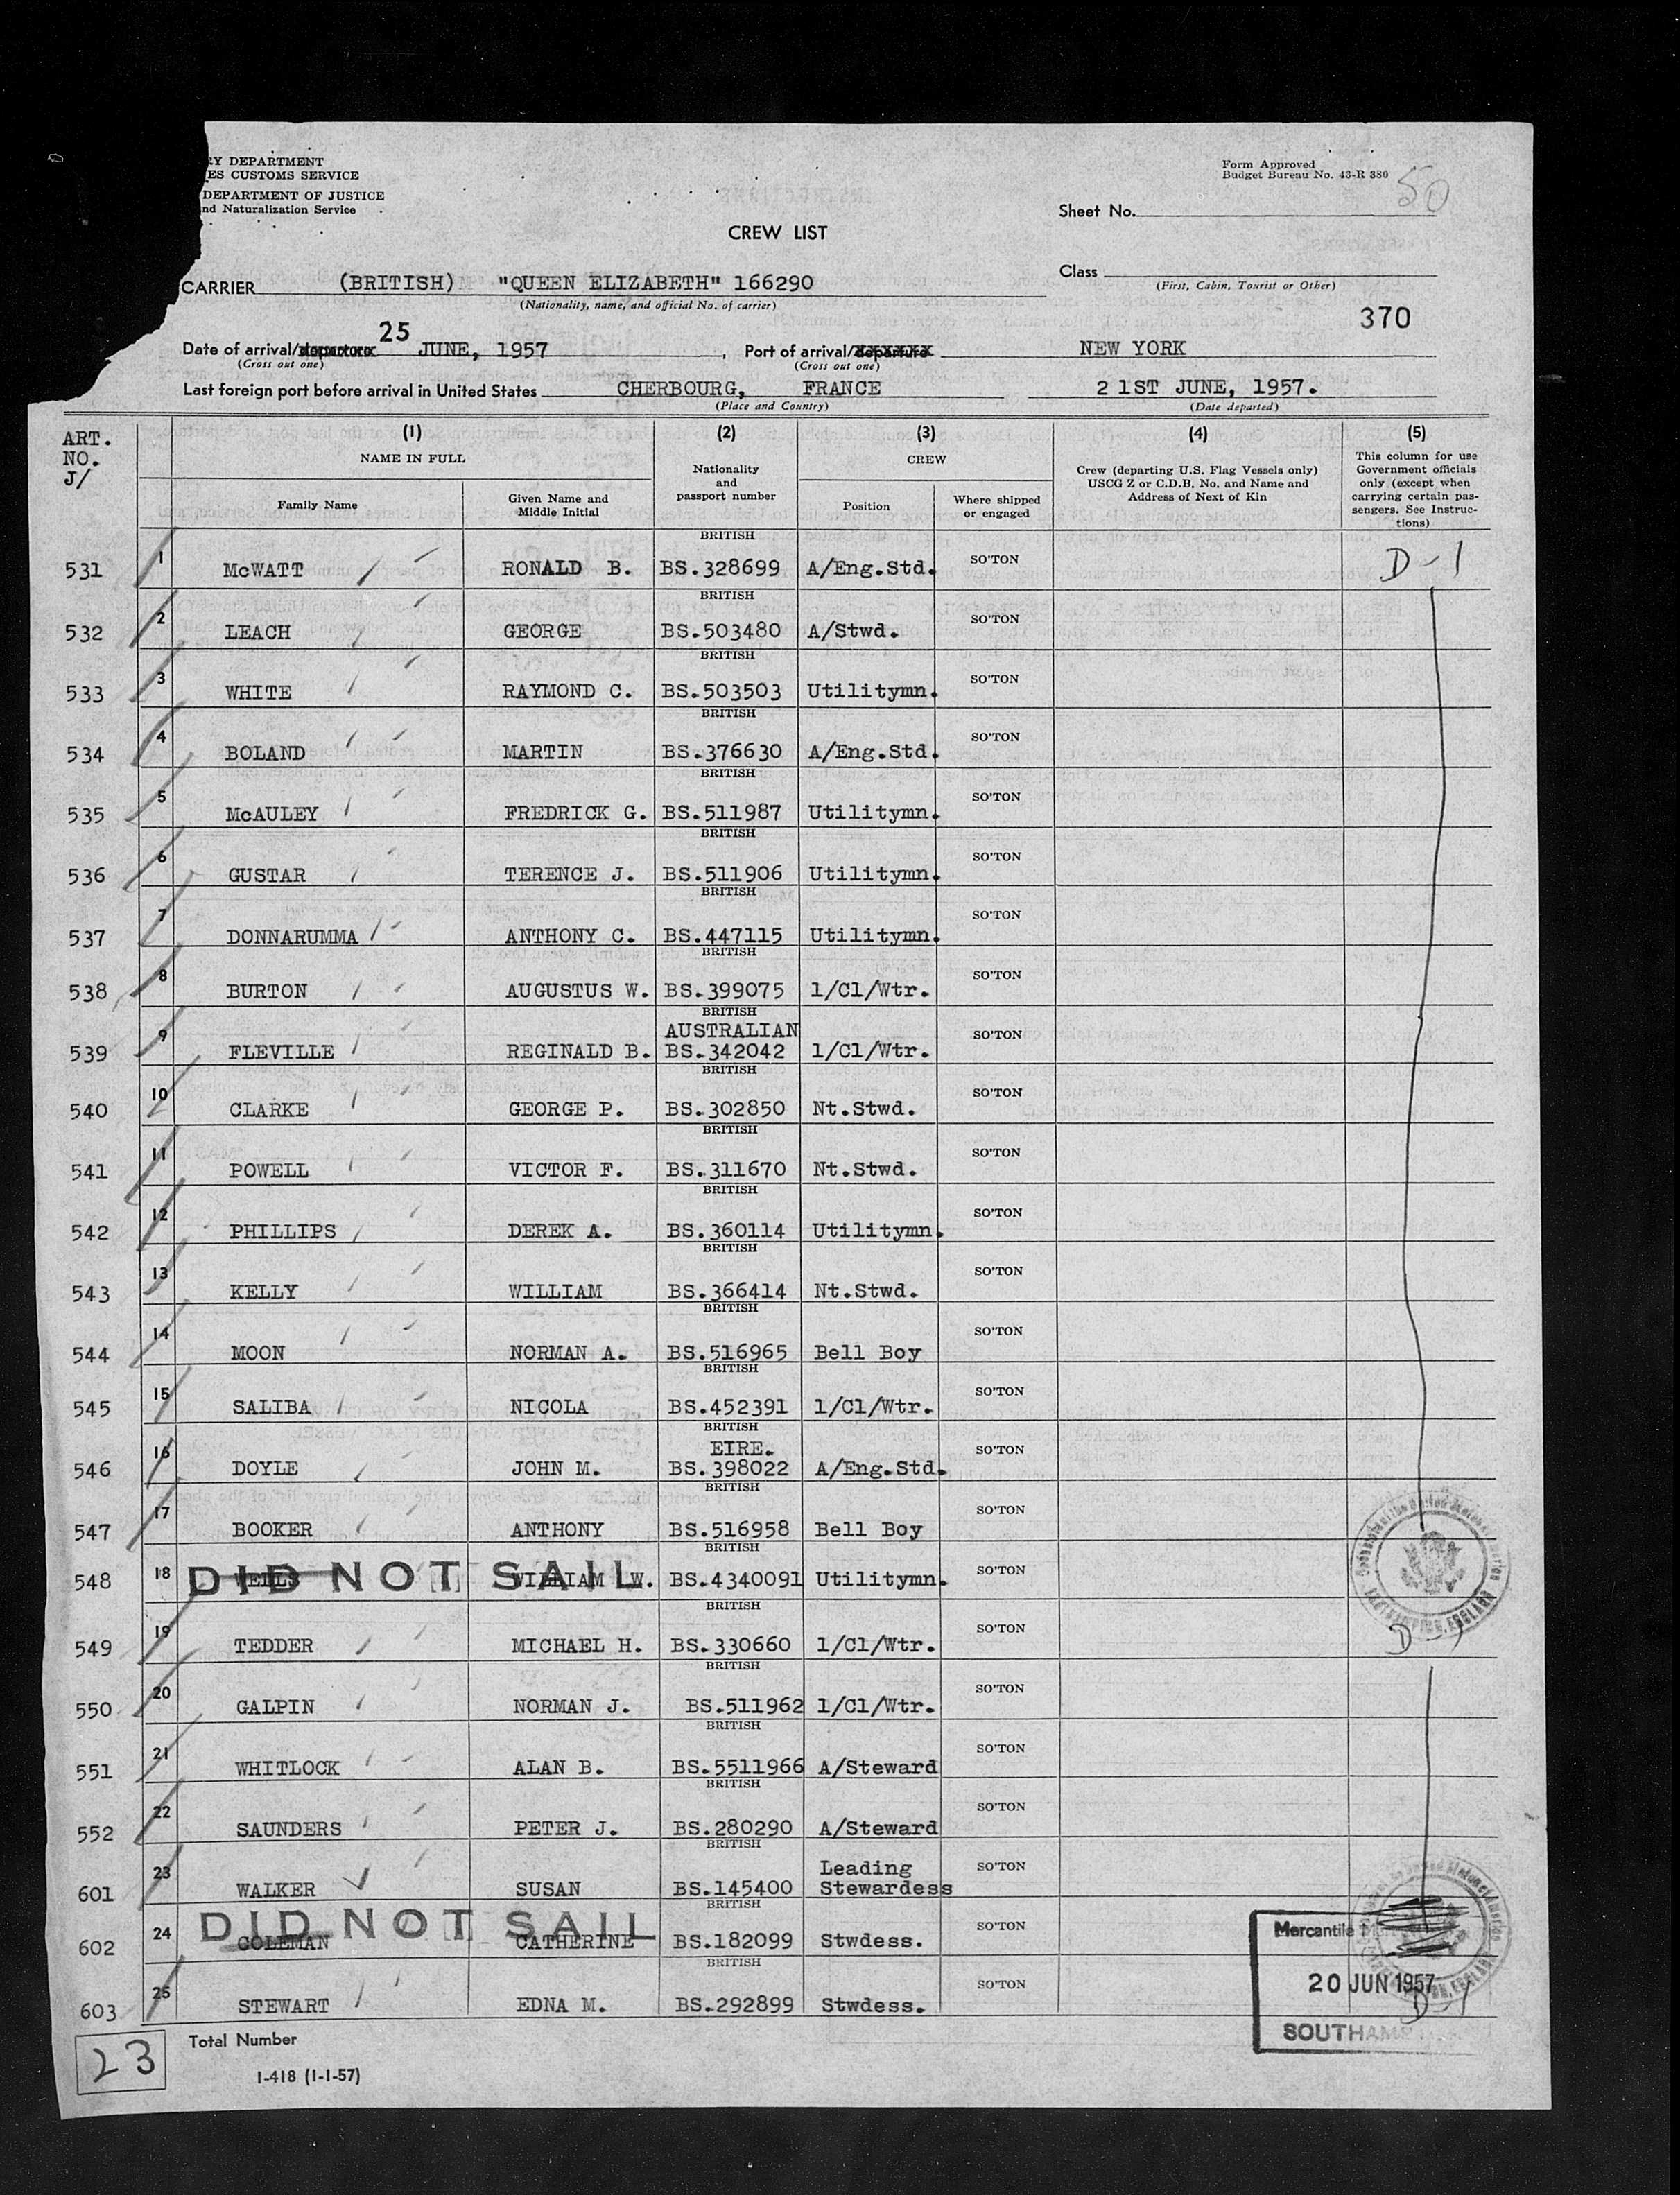 RY DEPARTMENT
ES CUSTOMS SERVICE
DEPARTMENT OF JUSTICE
nd Naturalization Service
Form Approved
Budget Bureau No. 43-R 380
50
Sheet No.
CREW LIST
Class
(First, Cabin, Tourist or Other)
CARRIER (BRITISH) "QUEEN ELIZABETH" 166290
(Nationality, name, and official No. of carrier)
370
25
Date of arrival/departure JUNE, 1957, Port of arrival/departure NEW YORK
(Cross out one) (Cross out one)
Last foreign port before arrival in United States CHERBOURG, FRANCE 21ST JUNE, 1957.
(Place and Country) (Date departed)
ART. NO. J/
(1) (2) (3) (4) (5)
NAME IN FULL
Family Name
Given Name and Middle Initial
Nationality and passport number
CREW
Position
Where shipped or engaged
Crew (departing U.S. Flag Vessels only) USCG Z or C.D.B. No. and Name and Address of Next of Kin
This column for use Government officials only (except when carrying certain passengers. See Instructions)
531 1 McWATT RONALD B. BRITISH BS.328699 A/Eng.Std. SO'TON D-1
532 2 LEACH GEORGE BRITISH BS.503480 A/Stwd. SO'TON
533 3 WHITE RAYMOND C. BRITISH BS.503503 Utilitymn. SO'TON
534 4 BOLAND MARTIN BRITISH BS.376630 A/Eng.Std. SO'TON
535 5 McAULEY FREDRICK G. BRITISH BS.511987 Utilitymn. SO'TON
536 6 GUSTAR TERENCE J. BRITISH BS.511906 Utilitymn. SO'TON
537 7 DONNARUMMA ANTHONY C. BRITISH BS.447115 Utilitymn. SO'TON
538 8 BURTON AUGUSTUS W. BRITISH BS.399075 1/Cl/Wtr. SO'TON
539 9 FLEVILLE REGINALD B. BRITISH AUSTRALIAN BS.342042 1/Cl/Wtr. SO'TON
540 10 CLARKE GEORGE P. BRITISH BS.302850 Nt.Stwd. SO'TON
541 11 POWELL VICTOR F. BRITISH BS.311670 Nt.Stwd. SO'TON
542 12 PHILLIPS DEREK A. BRITISH BS.360114 Utilitymn. SO'TON
543 13 KELLY WILLIAM BRITISH BS.366414 Nt.Stwd. SO'TON
544 14 MOON NORMAN A. BRITISH BS.516965 Bell Boy SO'TON
545 15 SALIBA NICOLA BRITISH BS.452391 1/Cl/Wtr. SO'TON
546 16 DOYLE JOHN M. BRITISH EIRE. BS.398022 A/Eng.Std. SO'TON
547 17 BOOKER ANTHONY BRITISH BS.516958 Bell Boy SO'TON
548 18 DID NOT SAIL WELLS WILLIAM W. BRITISH BS.4340091 Utilitymn. SO'TON
549 19 TEDDER MICHAEL H. BRITISH BS.330660 1/Cl/Wtr. SO'TON D-1
550 20 GALPIN NORMAN J. BRITISH BS.511962 1/Cl/Wtr. SO'TON
551 21 WHITLOCK ALAN B. BRITISH BS.5511966 A/Steward SO'TON
552 22 SAUNDERS PETER J. BRITISH BS.280290 A/Steward SO'TON
601 23 WALKER SUSAN BRITISH BS.145400 Leading Stewardess SO'TON
602 24 DID NOT SAIL COLEMAN CATHERINE BRITISH BS.182099 Stwdess. SO'TON
603 25 STEWART EDNA M. BRITISH BS.292899 Stwdess. SO'TON D-1
Mercantile
20 JUN 1957
SOUTHAM
23 Total Number
I-418 (1-1-57)